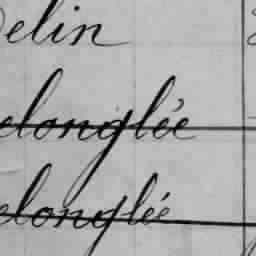 elin
elonglée
elonglée